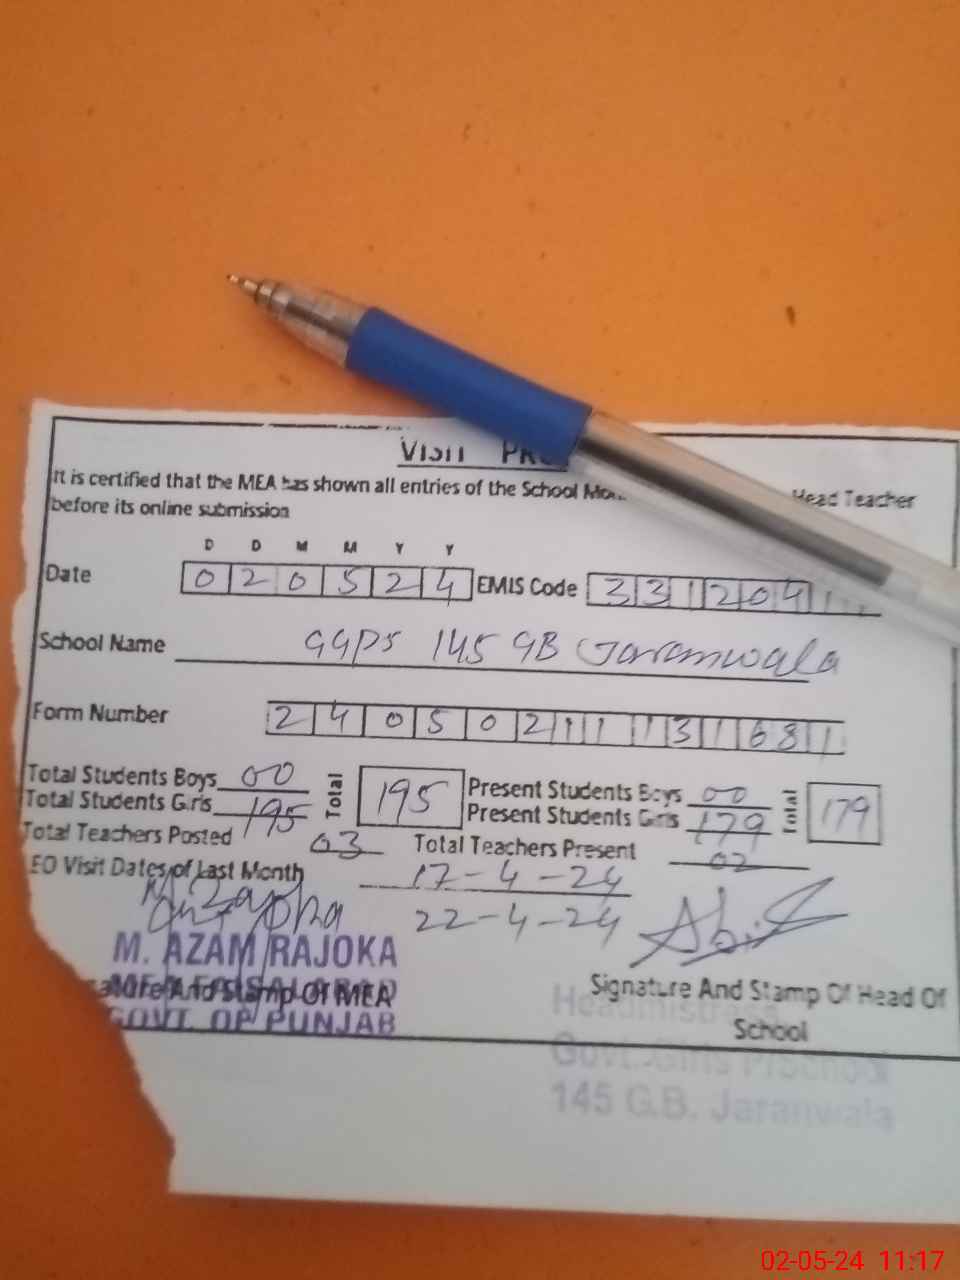 VISIT
It is certified that the MEA has shown all entries of the School Head Teacher
before its online submission
D D M M Y Y
Date 0 2 0 5 2 4 EMIS Code 3 3 1 2 0 4 1
School Name GGPS 145 GB Jaranwala
Form Number 2 4 0 5 0 2 1 1 1 3 1 6 8 1
Total Students Boys 00 Total 195 Present Students Boys 00 Total 179
Total Students Girls 195 Present Students Girls 179
Total Teachers Posted 03 Total Teachers Present 02
EO Visit Dates of Last Month 17-4-24
22-4-24
M. AZAM RAJOKA
MEA FAISALABAD
GOVT. OF PUNJAB
And Stamp Of MEA
Signature And Stamp Of Head Of School
Headmistress
Govt. Girls P/School
145 G.B. Jaranwala
02-05-24 11:17